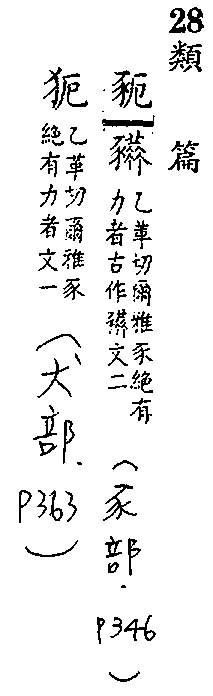 28類篇
豟䝈乙革切爾雅豕絕有
力者古作䝈文二
(豕部.P346)
㹣乙革切爾雅豕
絕有力者文一
(犬部.P363)